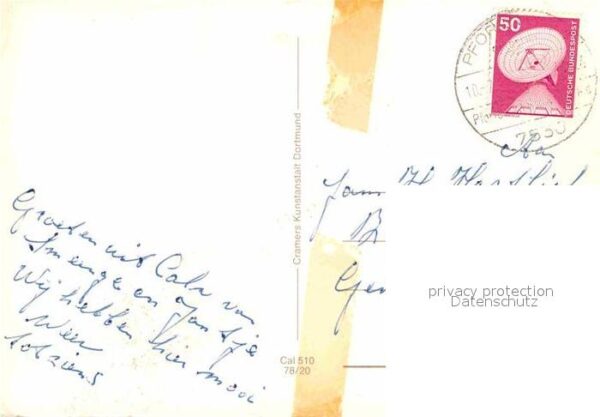 Groeten uit Calw van
Smenge en Jantje
Wij hebben hier mooi
Weer
totziens
Cramers Kunstanstalt Dortmund
Cal 510
78/20
50
DEUTSCHE BUNDESPOST
PFOR
10.
7530
An
Fam
privacy protection
Datenschutz